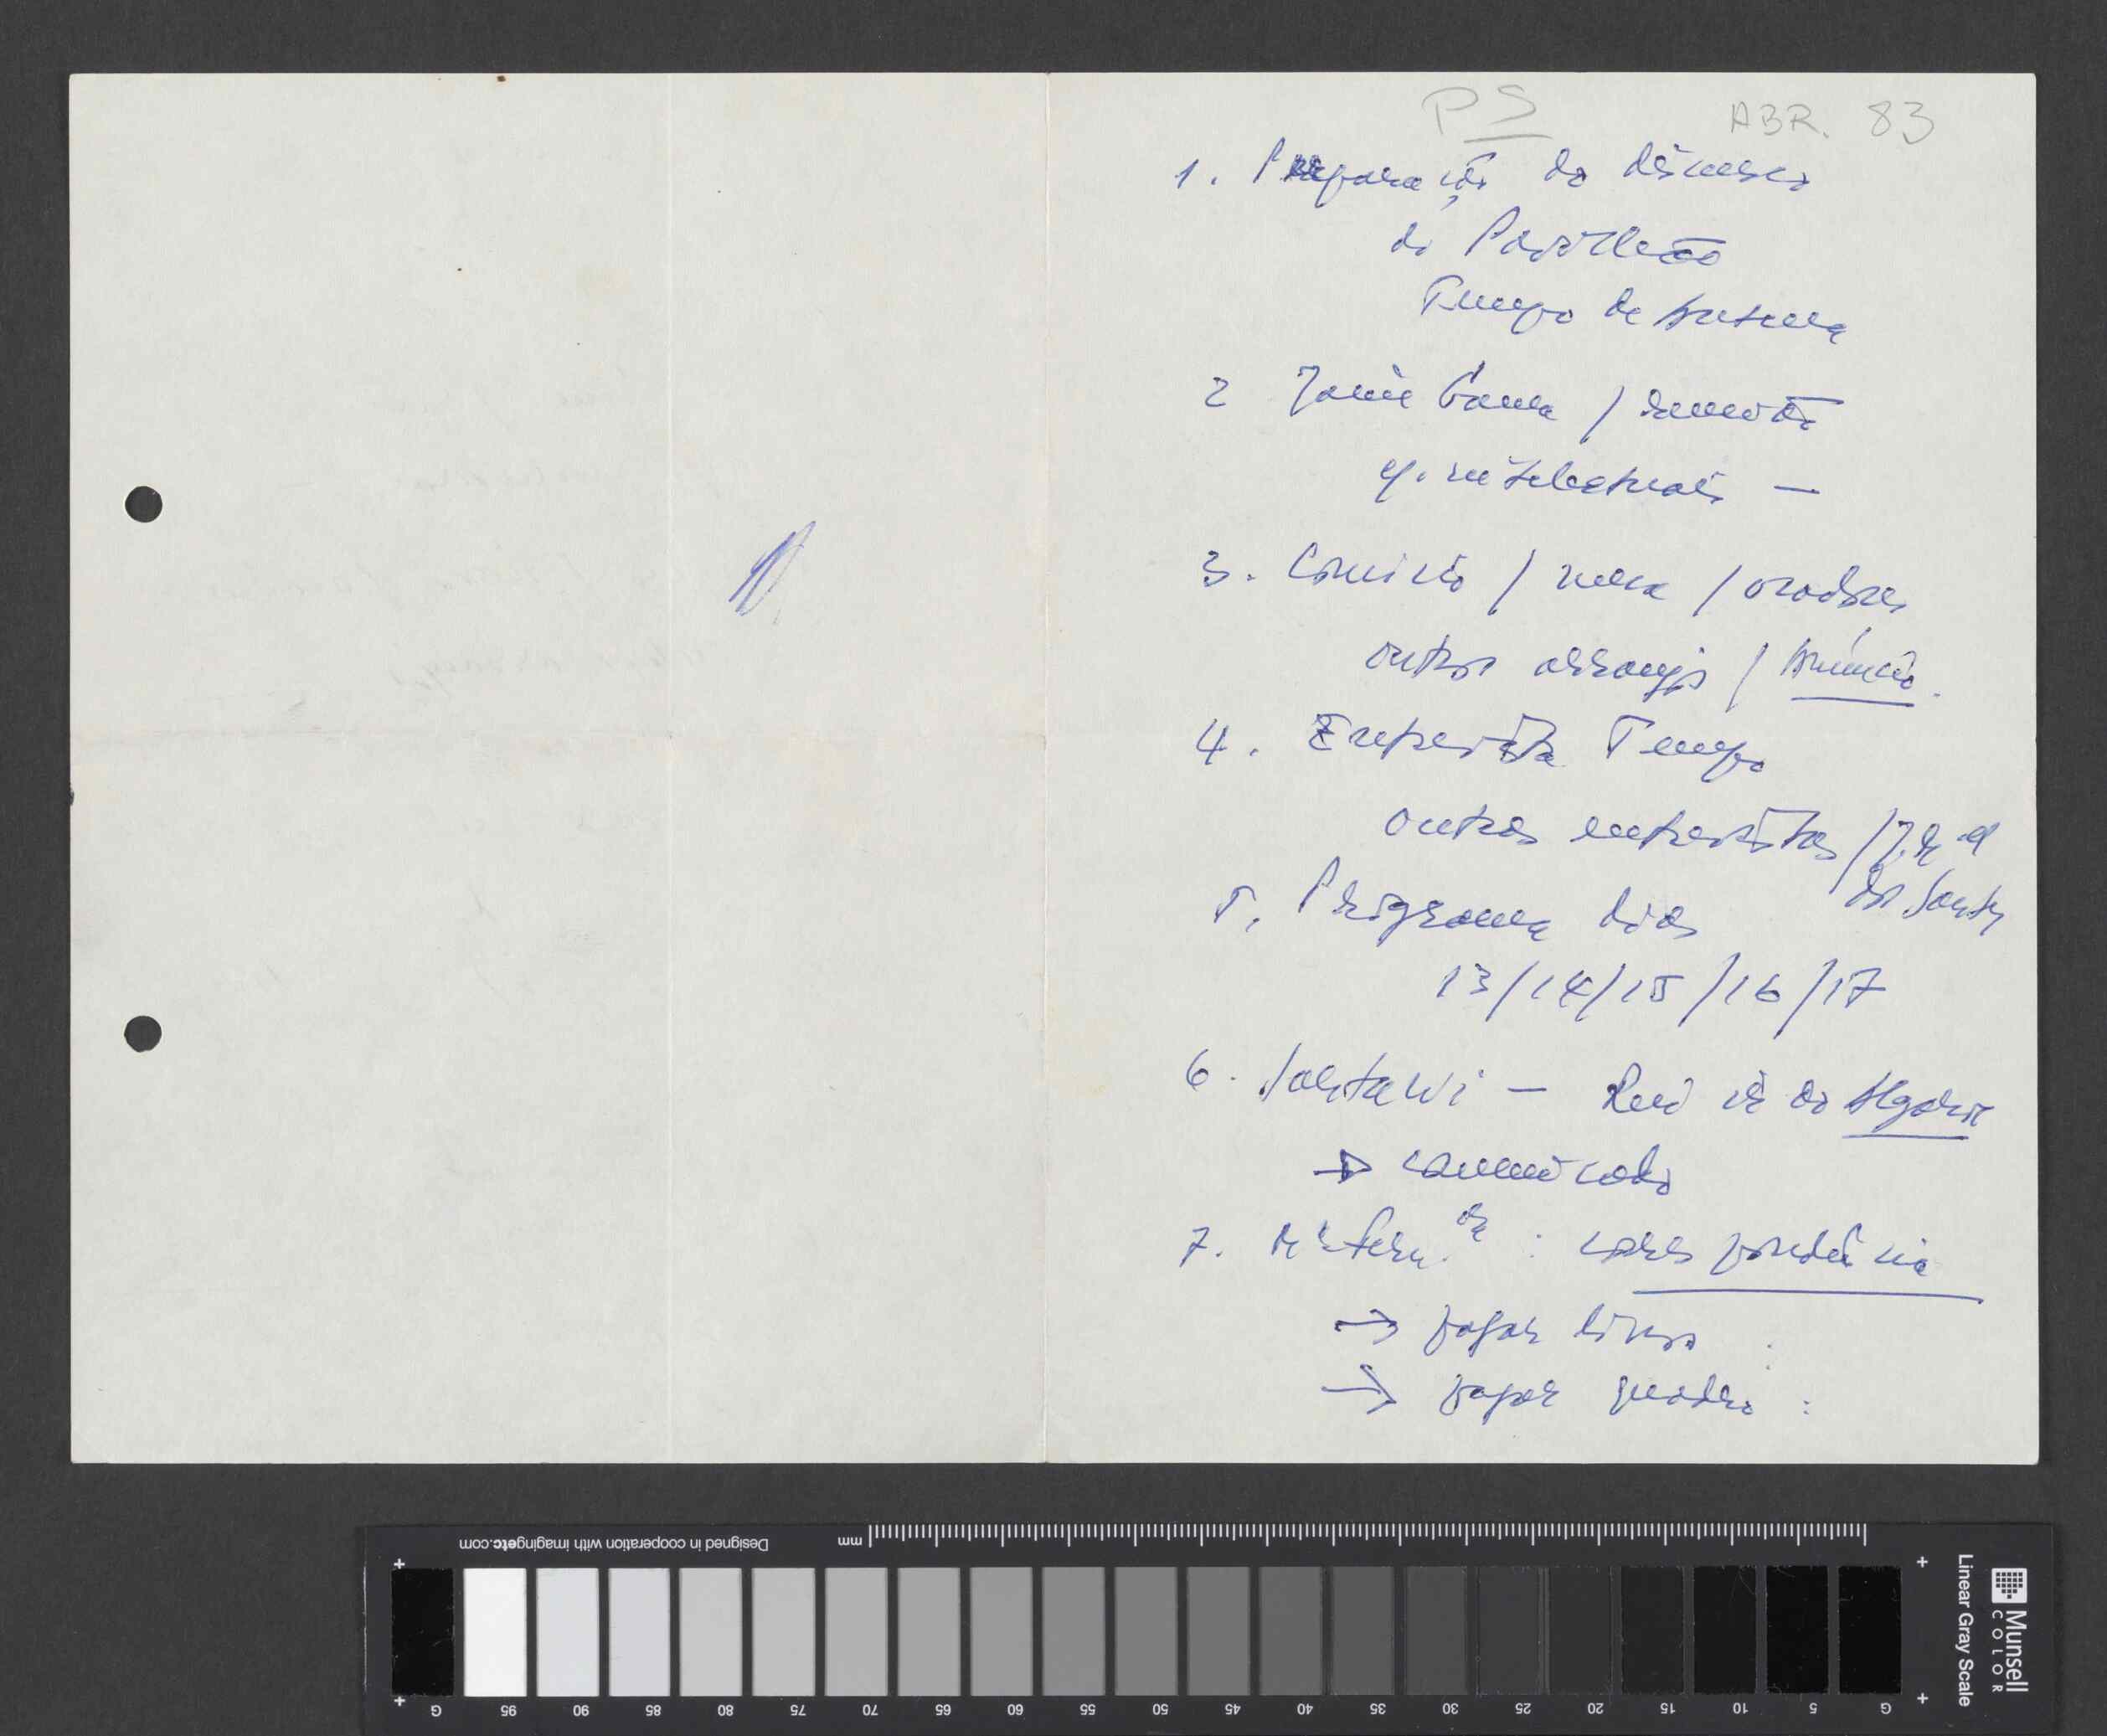 PS ABR. 83
1. Preparação do discurso
do Pavilhão
Tempo de Antena
2 Jaime Gama / reunião
c/. intelectuais —
3. Comício / mesa / oradores
outros arranjos / Anúncio.
4. Entrevista Tempo
outras entrevistas / J. R. 
dos Santos
5. Programa dias
13/14/15/16/17
6. Sartawi — Reunião do Algarve
→ comunicado
7. : correspondência
→ pagar livros :
→ pagar quadro :
Designed in cooperation with imagingetc.com
mm
G 95 90 85 80 75 70 65 60 55 50 45 40 35 30 25 20 15 10 5 G
Linear Gray Scale
Munsell
COLOR